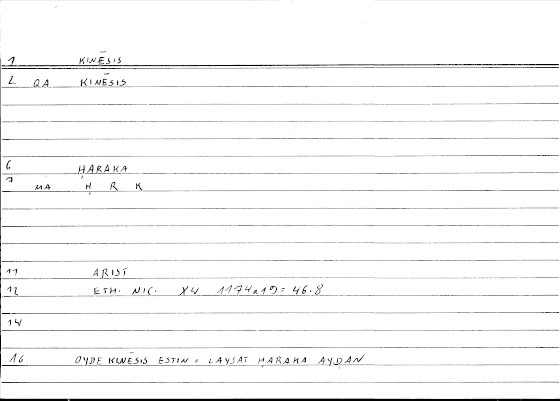 1 KINĒSIS
2 QA KINĒSIS
6 ḤARAKA
7 MA Ḥ R K
11 ARIST
12 ETH. NIC. X4 1174a19 = 46.8
14
16 OYDE KINĒSIS ESTIN = LAYSAT ḤARAKA AYḌAN